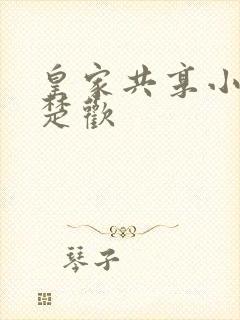 皇家共享小
楚歡
琴子